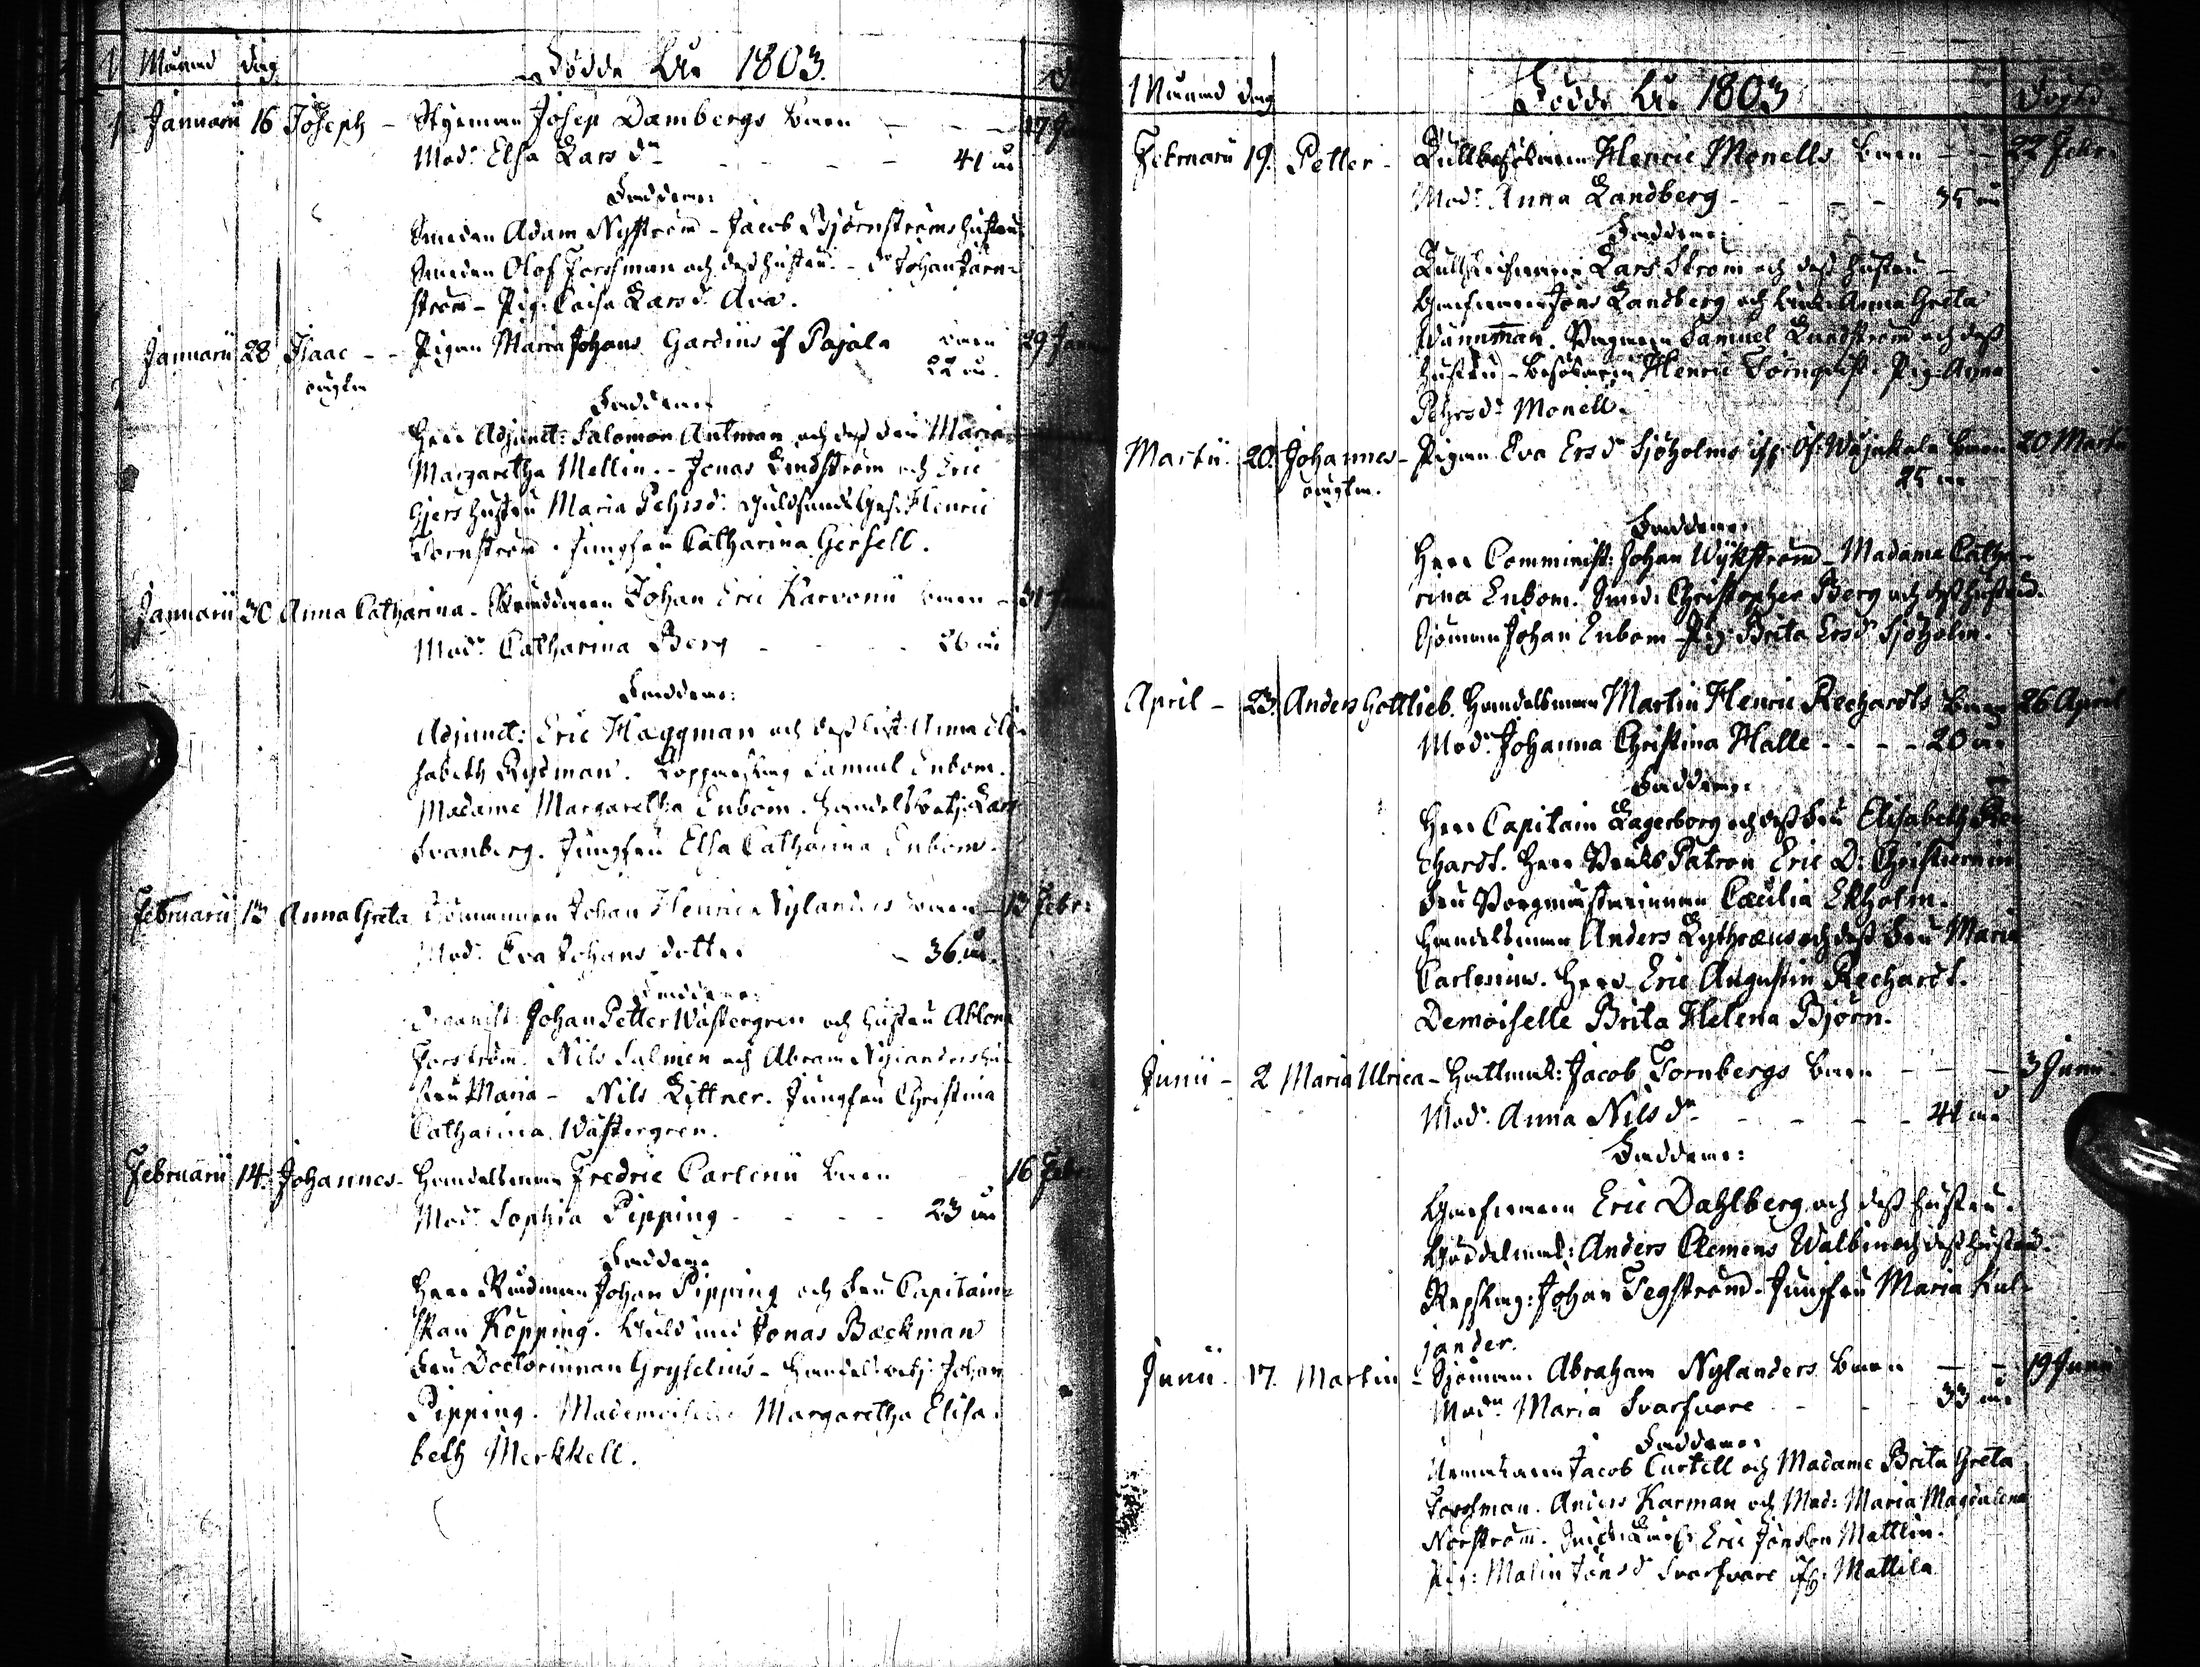 Månad dag Födde År 1803.
Januarii 16 Joseph - Styrman Josep Dambergs barn - - - 17
Mod: Elsa Lars dr - - - - 41 år
Faddrar:
Smeden Adam Nyström - Jacob Björnströms hustru
Smeden Olof Forssman och dess hustru. - Johan Järn-
ström - Pig: Caisa Larsdr Ava.
Januarii 28 Isaac - - Pigan Maria Johans Gardins if Pajala barn 29
oägta 22 år.
Faddrar
Herr Adjunct: Salomon Antman och dess fru Maria
Margaretha Mellin. - Jonas Lindström och Eric
Gjers hustru Maria Pehrsd: Guldsmeds Ges: Henric
Törnström. Jungfru Catharina Gersell.
Januarii 30 Anna Catharina - Johan Eric Karvonii barn - 31
Mod: Catharina Berg - - - - 26 år
Faddrar:
Adjunct: Eric Häggman och dess Anna Eli-
sabeth Rydman. Kopparslag Samuel Enbom.
Madame Margaretha Enbom. Handelsbetj: Lars
Svanberg. Jungfru Elsa Catharina Enbom.
Februarii 13 Anna Greta Sjömannen Johan Henric Nylanders barn - 13 Febr:
Mod: Eva Johans dotter - 36 år.
Faddrar:
Organist Johan Petter Wästergren och hustru
Forström. Nils Salmen och Abram Nylanders hu-
stru Maria - Nils Littner. Jungfru Christina
Catharina Wästergren.
Februarii 14. Johannes - Handelsman Fredric Carlenii barn 16 Febr
Mod: Sophia Pipping - - - - 23 år
Faddrar
Herr Rådman Johan Pipping och Fru Capitain-
skan Köpping. Guldsmed Jonas Bäckman
Fru Doctorinnan Gryselius - Handelsbetj: Johan
Pipping. Mademoiselle Margaretha Elisa-
beth Merkkell.
Månad dag Födde År 1803
Februarii 19. Petter - Henric Monells barn - - 22 Febr:
Mod: Anna Landberg - - - - 35 år
Faddrar:
Lars Ström och dess hustru -
Jöns Landberg och Anna Greta
Wännman. Samuel Lundström och dess
hustru - Henric Törnqvist. Pig: Anna
Pehrsd: Monell.
Martii. 20. Johannes - Pigan Eva Ersdr Sjöholms if: Öf: Wojakala barn 20 Martii
oägta. 25 år
Faddrar:
Herr Comminist: Johan Wykström - Madame Catha-
rina Enbom. Smed: Christopher Berg och dess hustru.
Sjöman Johan Enbom - Pig: Brita Ersdr Sjöholm.
April - 23. Anders Gottlieb. Handelsman Martin Henric Rechardts barn 26 April
Mod: Johanna Christina Halle - - - - 20 år
Faddrar:
Herr Capitain Lagerborg och dess Fru Elisabeth Re-
chardt. Herr Bruks Patron Eric D: Christiernin
Fru Borgmästarinnan Cæcilia Ekholm.
Handelsman Anders Lythræus och dess Fru Maria
Carlenius. Herr Eric Augustin Rechardt.
Demoiselle Brita Helena Björn.
Junii - 2 Maria Ulrica - Hattmak: Jacob Tornbergs barn - - - 3 Junii
Mod: Anna Nils dr - - - - 41 år
Faddrar:
Eric Dahlberg och dess hustru.
Anders Clemens Walbin och dess hustru.
Repslag: Johan Tegström. Jungfru Maria Kul-
jander.
Junii. 17. Martin - Sjöman Abraham Nylanders barn - - 19 Junii
Modr Maria Svarfvare - - - 33 år
Faddrar
Jacob Curtell och Madame Brita Greta
Forssman. Anders Karman och Mad: Maria Magdalena
Norström. Eric Jönsson Mattlin.
Pig: Malin Jönsd Svarfvare if: Mattila